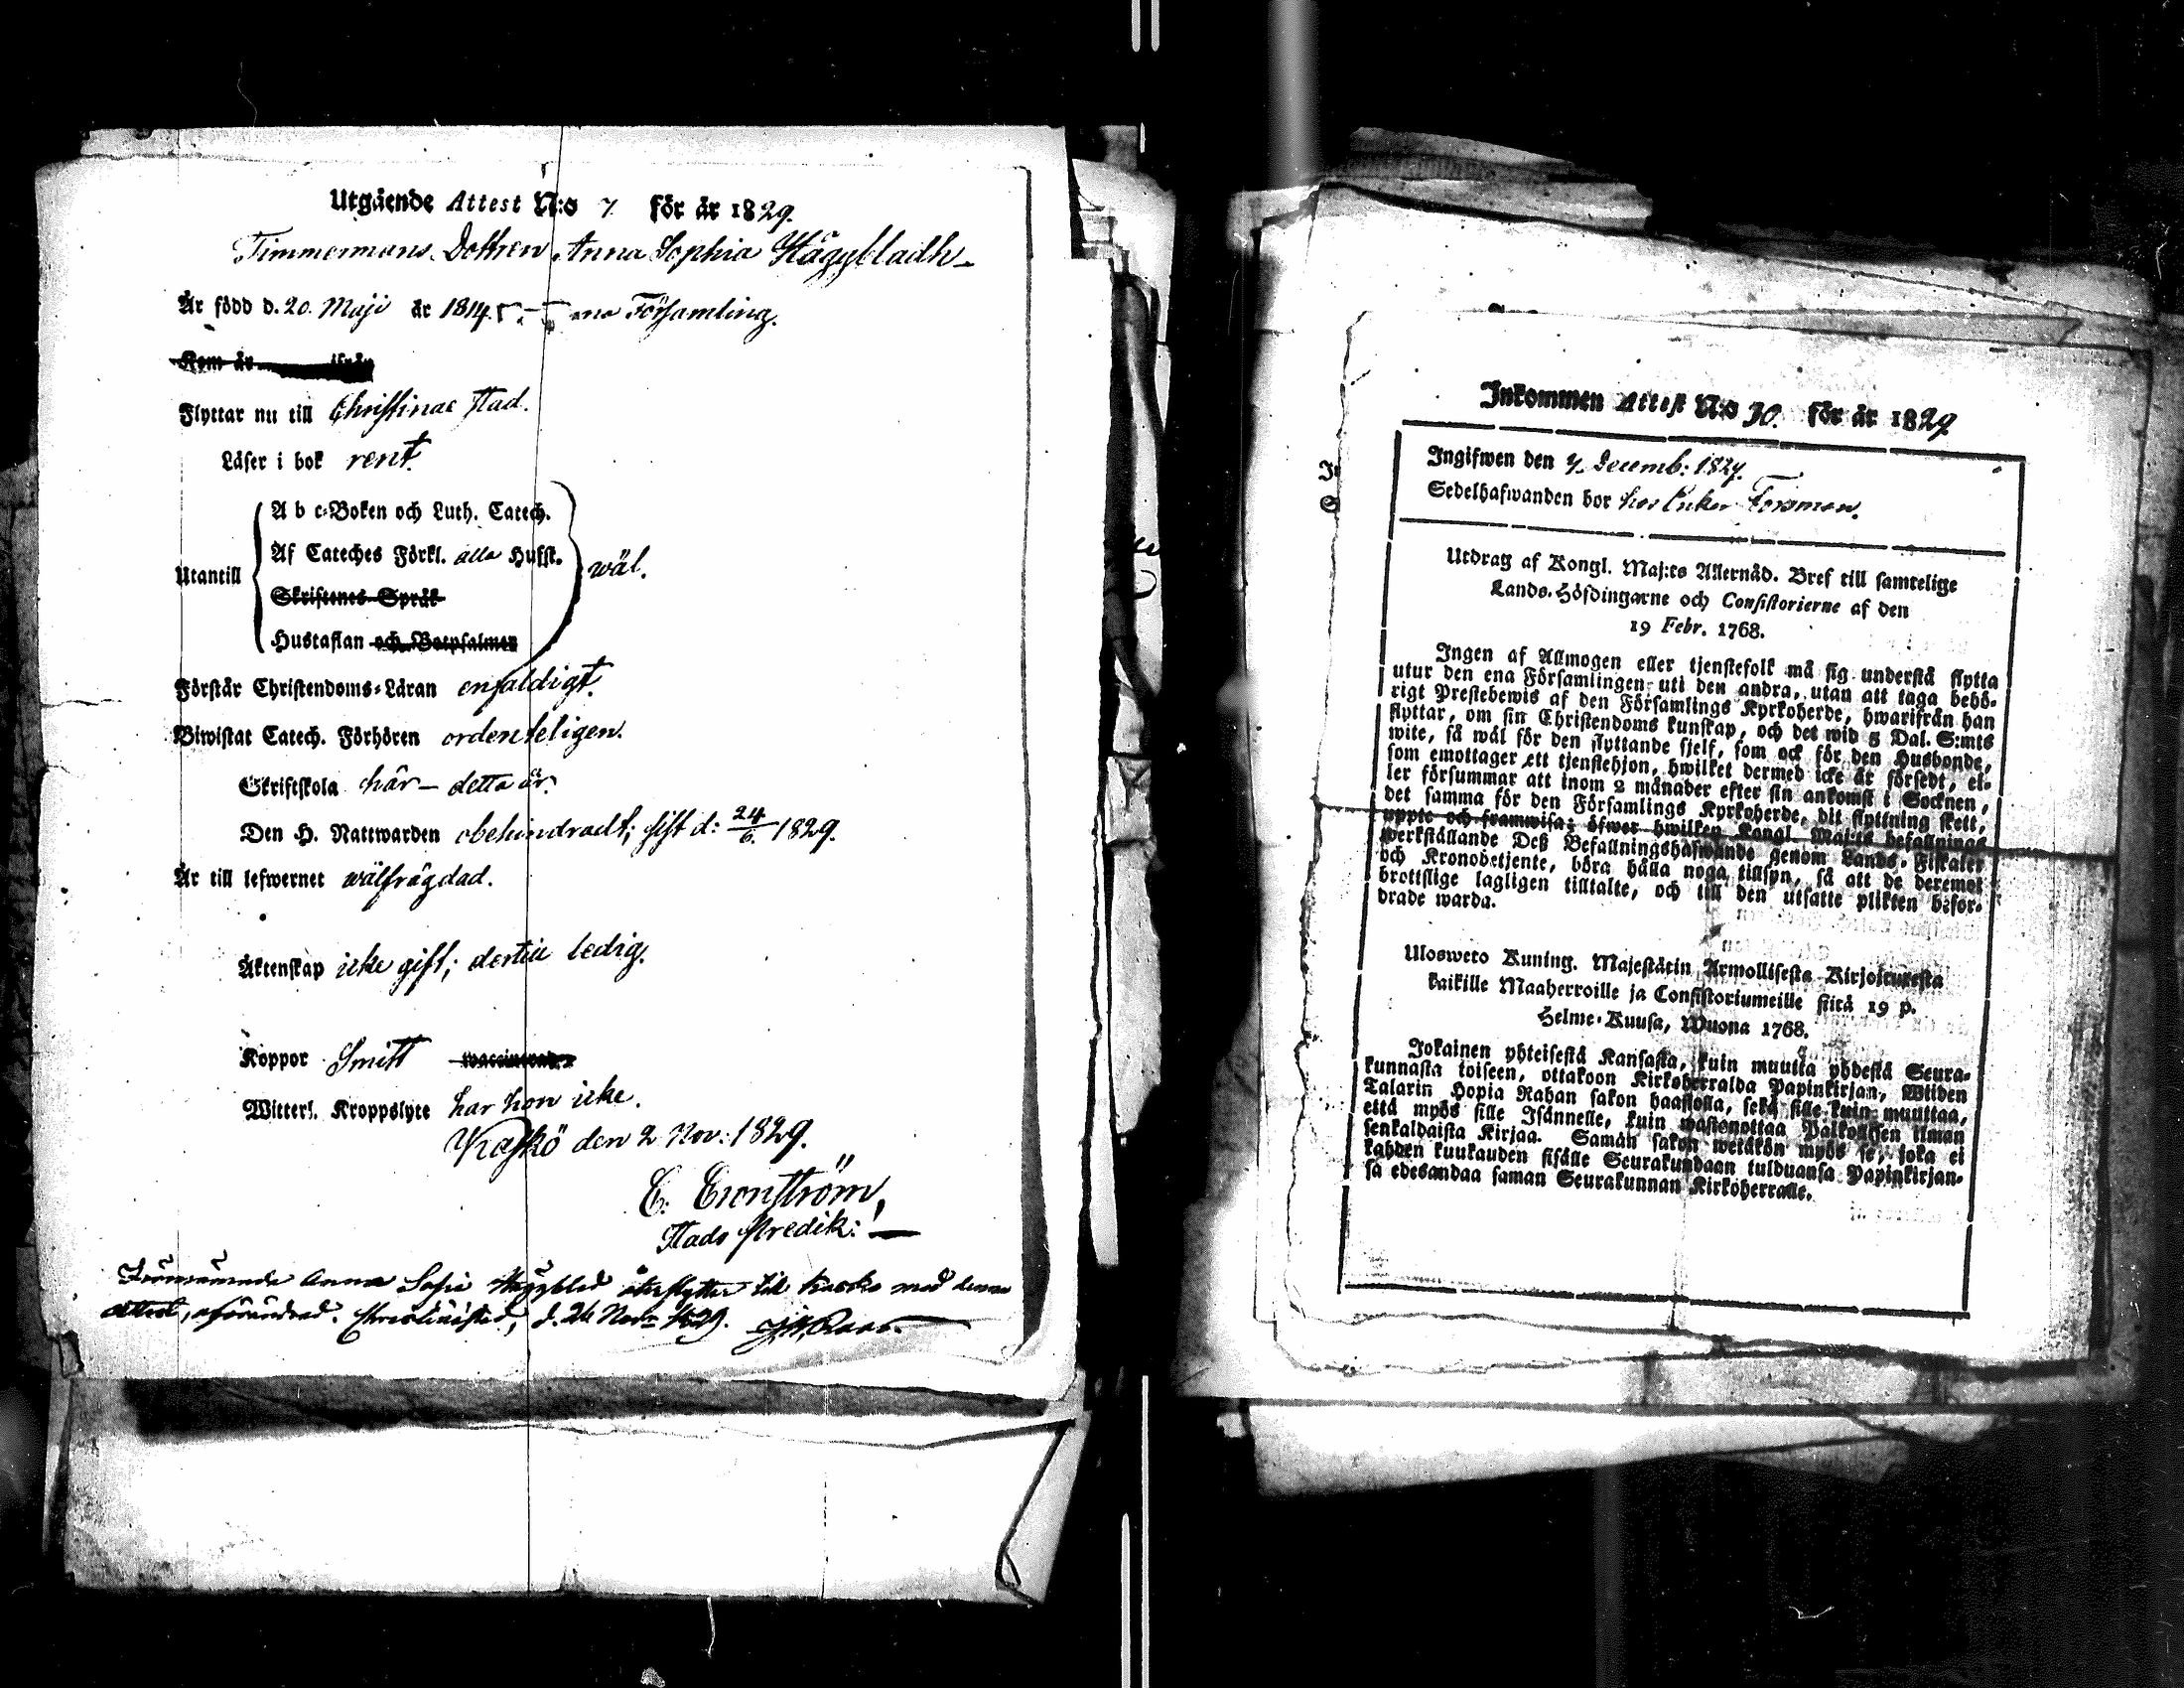 Utgående Attest N:o 7. för år 1829.
Timmermans Dottren Anna Sophia Häggbladh
Är född d. 20. Maji år 1814. Församling.
Kom år ifrån
Flyttar nu till Christinae stad.
Läser i bok rent.
A b c-Boken och Luth. Catech.
Af Cateches Förkl. alla Hufst.
Utantill wäl.
Skriftenes Språk
Hustaflan och Botpsalmen
Förstår Christendoms-Läran enfaldigt.
Biwistat Catech. Förhören ordenteligen.
Skriftskola här – detta år.
Den H. Nattwarden obehindradt; sist d: 24/6. 1829.
Är till lefwernet wälfrägdad.
Äktenskap icke gift; dertill ledig.
Koppor Smitt
Witterl. Kroppslyte har hon icke.
Kaskö den 2 Nov: 1829.
E: Cronström,
Stads Predik:
Anna Sofia Häggblad återflyttar till Kaskö med denna
attest, oförändrad. Christinæstad, d. 26 Nov: 1829.
Inkommen Attest N:o 30. för år 1829
Ingifwen den 7. Decemb: 1829.
Sedelhafwanden bor hos Enkan Forsman.
Utdrag af Kongl. Maj:ts Allernåd. Bref till samtelige
Lands-Höfdingarne och Consistorierne af den
19 Febr. 1768.
Ingen af Allmogen eller tjenstefolk må sig understå flytta
utur den ena Församlingen uti den andra, utan att taga behö-
rigt Prestebewis af den Församlings Kyrkoherde, hwarifrån han
flyttar, om sin Christendoms kunskap, och det wid 5 Dal. S:mts
wite, så wäl för den flyttande sjelf, som ock för den Husbonde,
som emottager ett tjenstehjon, hwilket dermed icke är försedt, el-
ler försummar att inom 2 månader efter sin ankomst i Socknen,
det samma för den Församlings Kyrkoherde, dit flyttning skett,
uppte och framwisa; öfwer hwilken Kongl. Maj:ts befallnings
werkställande Deß Befallningshafwande genom Lands-Fiskaler
och Kronobetjente, böra hålla noga tillsyn, så att de deremot
brottslige lagligen tilltalte, och till den utsatte plikten befor-
drade warda.
Ulosweto Kuning. Majestätin Armollisesta Kirjoituresta
kaikille Maaherroille ja Consistoriumeille siitä 19 p.
Helme-Kuusa, Wuona 1768.
Jokainen yhteisestä Kansasta, kuin muutta yhdestä Seura-
kunnasta toiseen, ottakoon Kirkoherralda Papinkirjan, Wiiden
Talarin Hopia Rahan sakon haastolla, sekä sille kuin muuttaa,
että myös sille Isännelle, kuin wastanottaa Palkollisen ilman
senkaldaista Kirjaa. Saman sakon wetäkön myös se, joka ei
kahden kuukauden sisälle Seurakundaan tulduansa Papinkirjan-
sa edesandaa saman Seurakunnan Kirkoherralle.